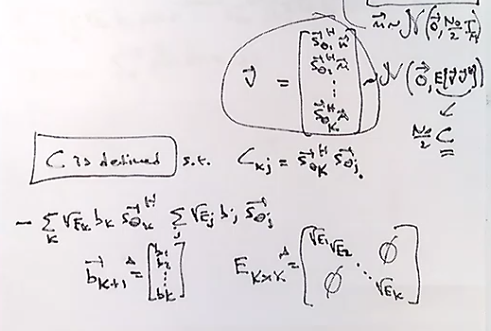 n⃗ ~ N(0⃗, N₀/2 I_M)
v⃗ = [s⃗_θ₁ᴴ n⃗, s⃗_θ₁ᴴ n⃗, ⋮, s⃗_θ_Kᴴ n⃗] ~ N(0⃗, E[v⃗ v⃗ᴴ])
N₀/2 C
C is defined s.t. C_kj = s⃗_θ_Kᴴ s⃗_θ_j.
- Σ_k √E_k b_k s⃗_θ_kᴴ Σ_j √E_j b_j s⃗_θ_j
b⃗_K×1 ≜ [b₁, b₂, ⋮, b_K] E_K×K ≜ [√E₁ √E₂ ∅ ∅ ⋱ √E_K]